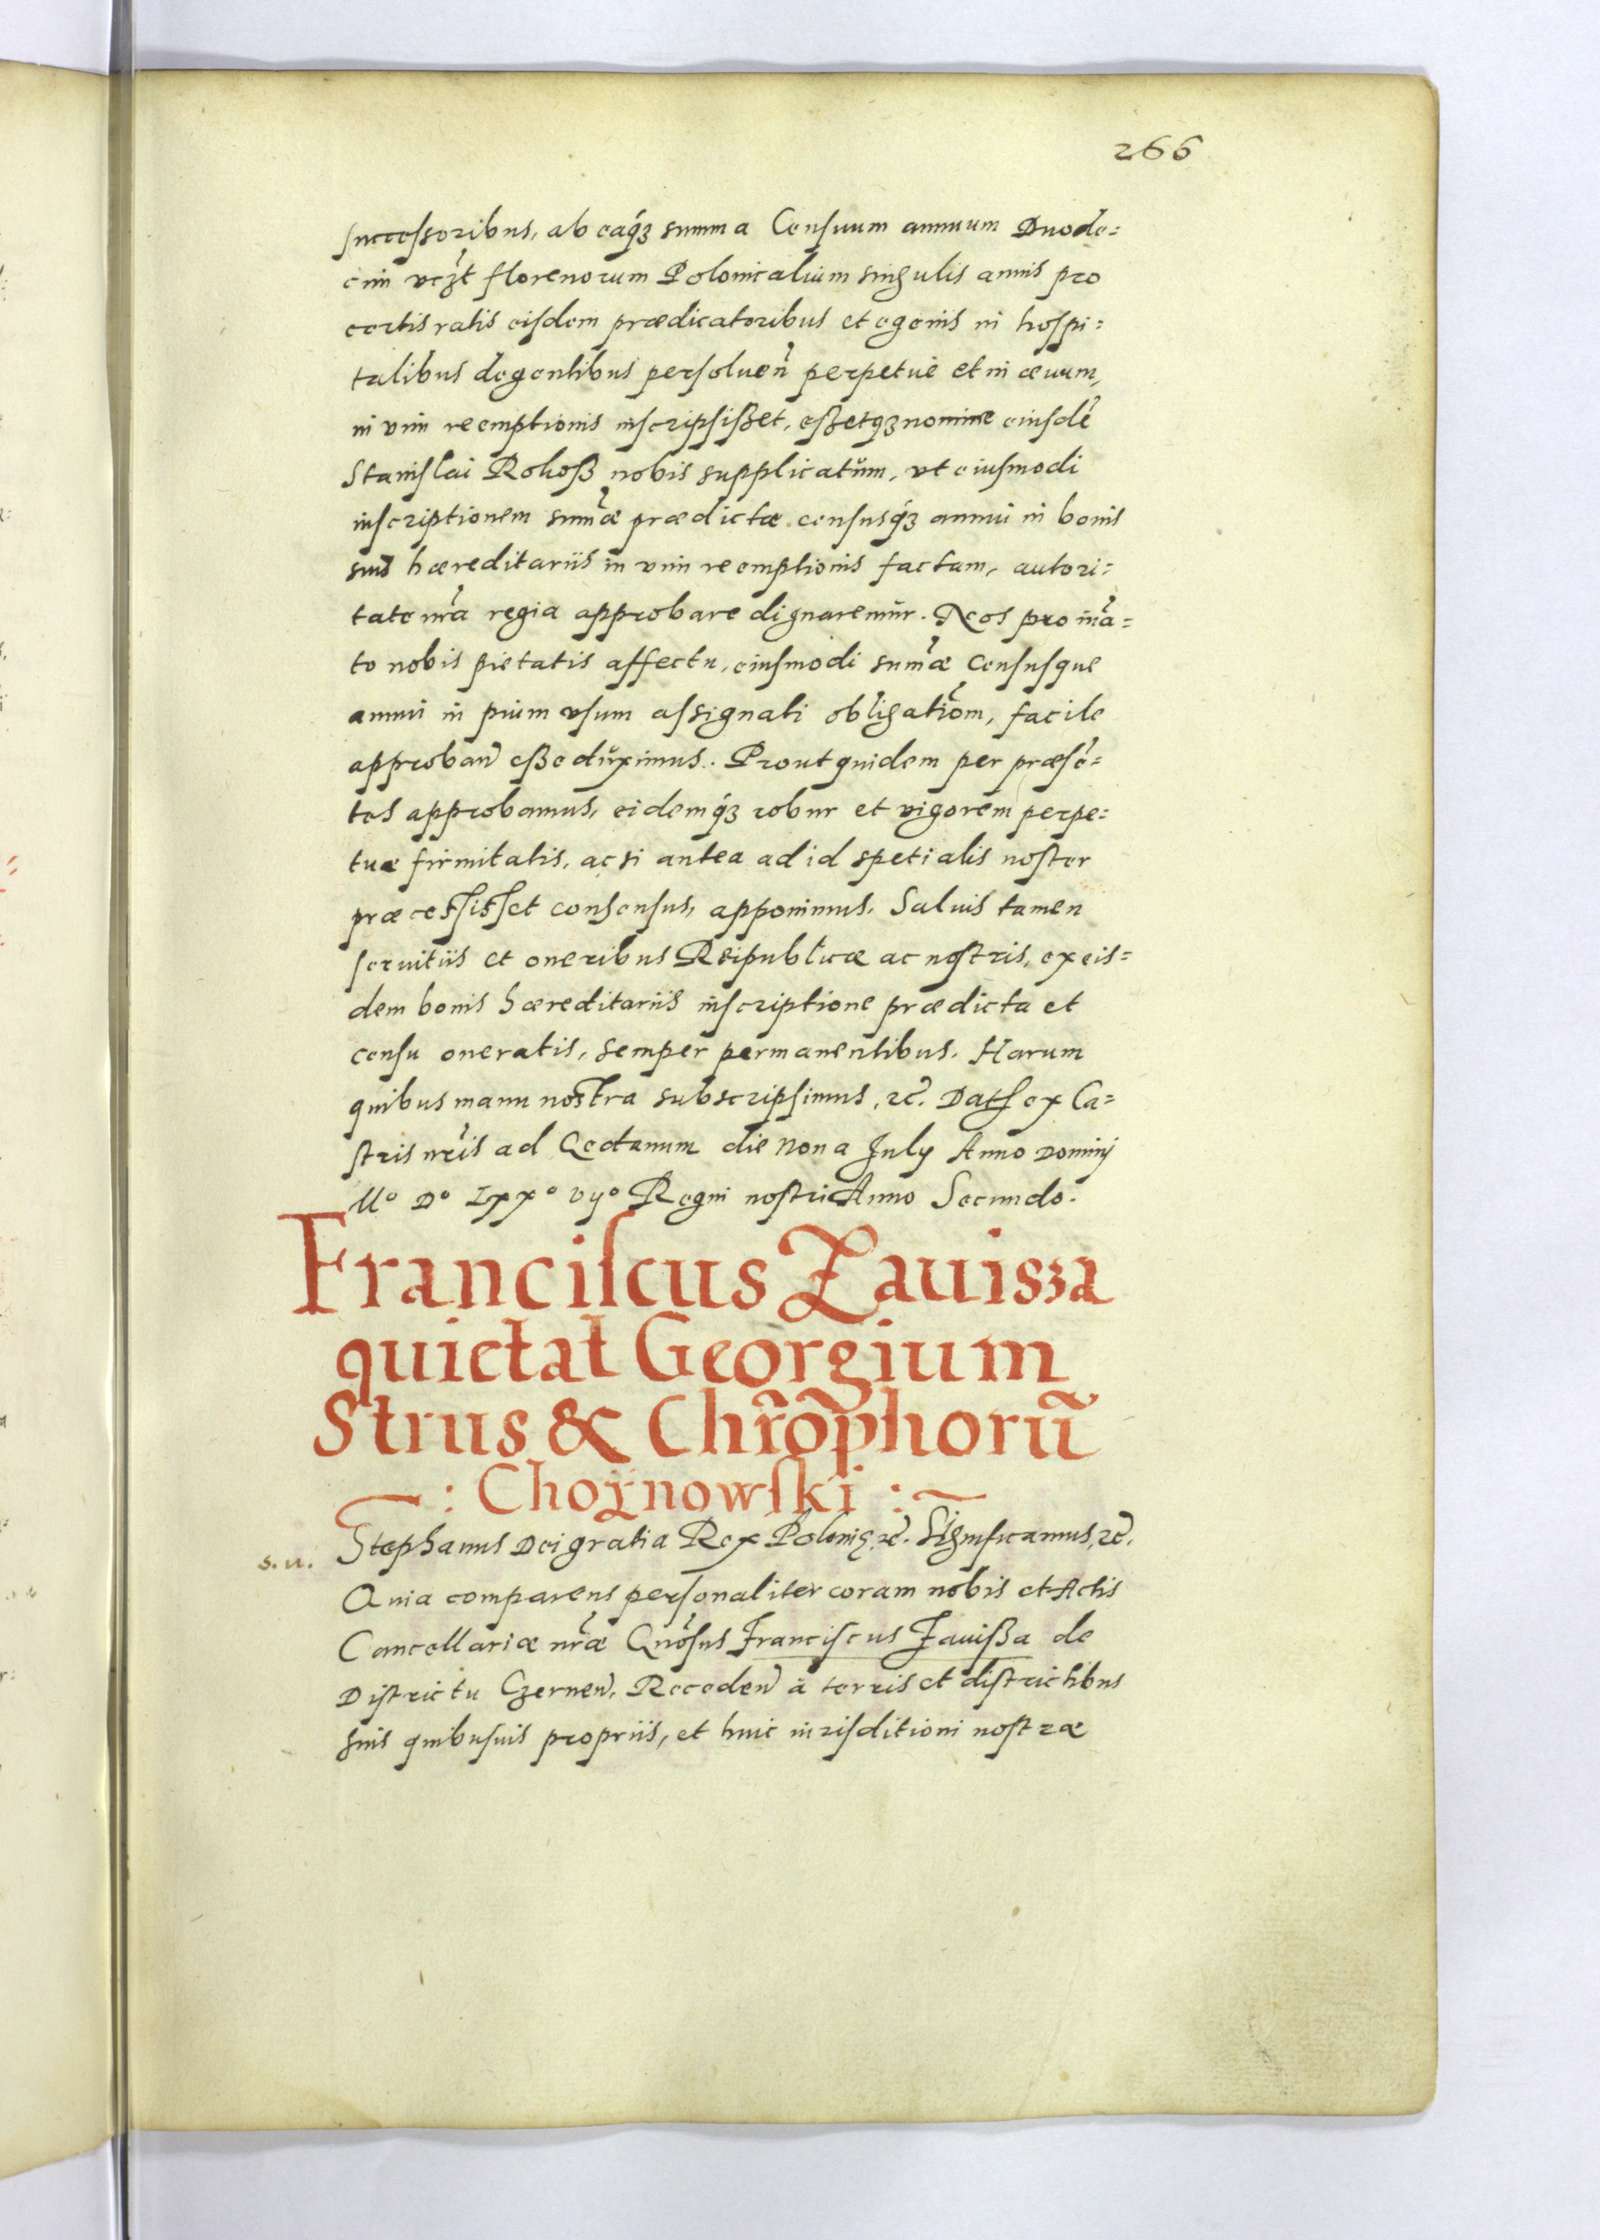 266
successoribus, ab eaq́ꝫ summa Censuum annuum Duode=
cim vcꝫt florenorum Polonicalium singulis annis pro
certis ratis eisdem prædicatoribus et egenis in hospi=
talibus degentibus persoluen̄ perpetuè et in æuum,
in vim reemptionis inscripsißet, eßetqꝫ nomine eiusdē
Stanislai Rokoß nobis supplicatŭm, vt eiusmodi
inscriptionem sum̄æ prædictæ censusq́ꝫ annui in bonis
suis hæreditariis in vim reemptionis factam, autori=
tate nr̄a regia approbare dignaremŭr. Nos pro in̄a=
to nobis pietatis affectu, eiusmodi sum̄æ Censusque
annui in pium vsum assignati obligatiōm, facile
approban̄ eße dŭximus. Prout quidem per præsē=
tes approbamus, eidemq́ꝫ robur et vigorem perpe=
tuæ firmitatis, ac si antea ad id spetialis noster
præcessisset consensus, apponimus. Saluis tamen
seruitiis et oneribus Reipublicæ ac nostris, ex eis=
dem bonis hæreditariis inscriptione prædicta et
censu oneratis, semper permanentibus. Harum
quibus manu nostra subscripsimus, ꝛc̄. Datꝭ ex Ca=
stris nr̄is ad Gedanum die Nona July Anno Dominj
Mº Dº Lxxº vijº Regni nostri Anno Secundo.
Franciscus Zauisza
quictat Georgium
Strus & Chr̄ophorū
: Choynowski :
s. u.
Stephanus Dei gratia Rex Polonię, ꝛc̄. Significamus, ꝛc̄.
Quia comparens personaliter coram nobis et Actis
Cancellariæ nr̄æ Gn̄osus Franciscus Zauißa de
Districtu Czernen̄, Receden̄ à terris et districtibus
suis quibusuis propriis, et huic iurisditioni nostræ